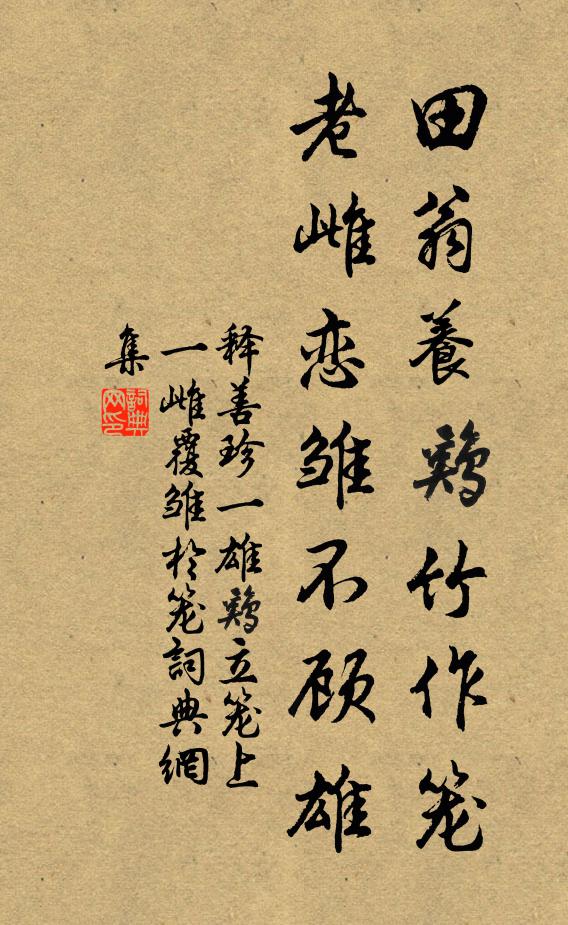 田翁养鸡竹作笼
老雌恋雏不顾雄
释善珍一雄鸡立笼上
一雌覆雏於笼詞典網
集
詞典
网印